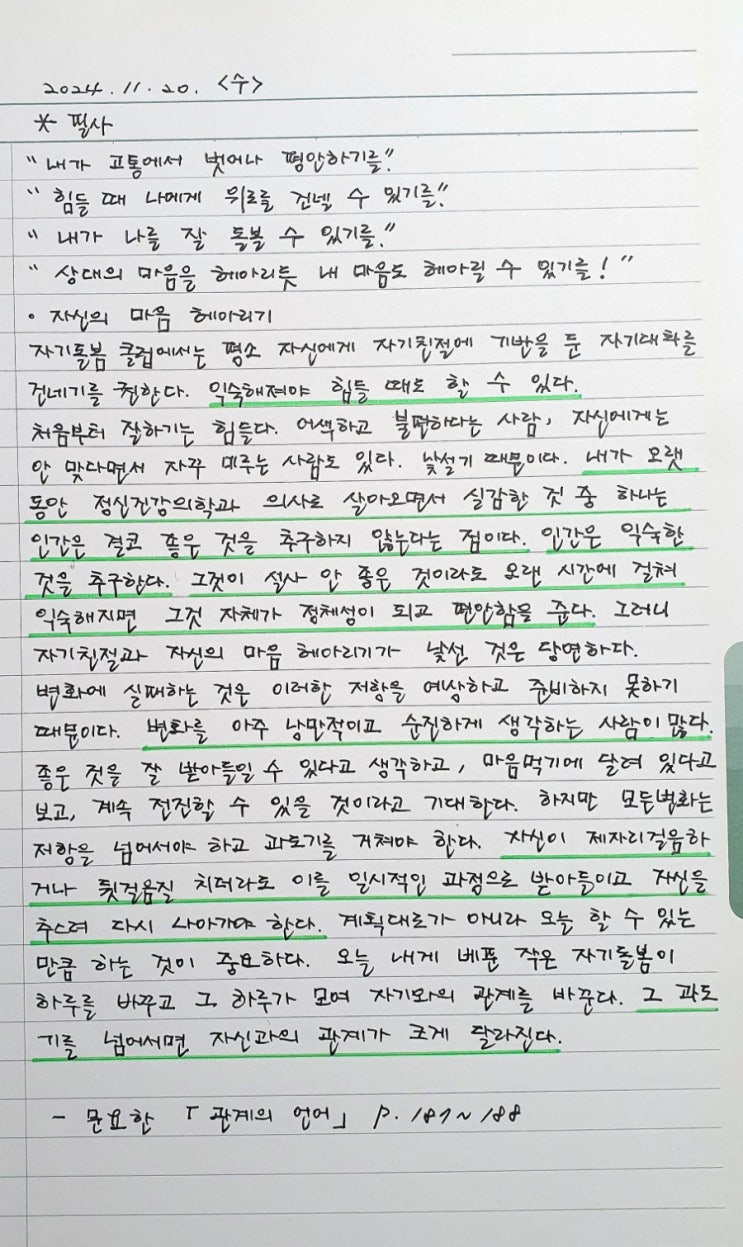 2024. 11. 20. <수>
* 필사
"내가 고통에서 벗어나 평안하기를."
"힘들 때 나에게 위로를 건넬 수 있기를."
"내가 나를 잘 돌볼 수 있기를."
"상대의 마음을 헤아리듯 내 마음도 헤아릴 수 있기를!"
• 자신의 마음 헤아리기
자기돌봄 클럽에서는 평소 자신에게 자기친절에 기반을 둔 자기대화를
건네기를 권한다. 익숙해져야 힘들 때도 할 수 있다.
처음부터 잘하기는 힘들다. 어색하고 불편하다는 사람, 자신에게는
안 맞다면서 자꾸 미루는 사람도 있다. 낯설기 때문이다. 내가 오랫
동안 정신건강의학과 의사로 살아오면서 실감한 것 중 하나는
인간은 결코 좋은 것을 추구하지 않는다는 점이다. 인간은 익숙한
것을 추구한다. 그것이 설사 안 좋은 것이라도 오랜 시간에 걸쳐
익숙해지면 그것 자체가 정체성이 되고 편안함을 준다. 그러니
자기친절과 자신의 마음 헤아리기가 낯선 것은 당연하다.
변화에 실패하는 것은 이러한 저항을 예상하고 준비하지 못하기
때문이다. 변화를 아주 낭만적이고 순진하게 생각하는 사람이 많다.
좋은 것을 잘 받아들일 수 있다고 생각하고, 마음먹기에 달려 있다고
보고, 계속 전진할 수 있을 것이라고 기대한다. 하지만 모든변화는
저항을 넘어서야 하고 과도기를 거쳐야 한다. 자신이 제자리걸음하
거나 뒷걸음질 치더라도 이를 일시적인 과정으로 받아들이고 자신을
추스려 다시 나아가야 한다. 계획대로가 아니라 오늘 할 수 있는
만큼 하는 것이 중요하다. 오늘 내게 베푼 작은 자기돌봄이
하루를 바꾸고 그 하루가 모여 자기와의 관계를 바꾼다. 그 과도
기를 넘어서면 자신과의 관계가 크게 달라진다.
- 문요한 「관계의 언어」 p. 187~188